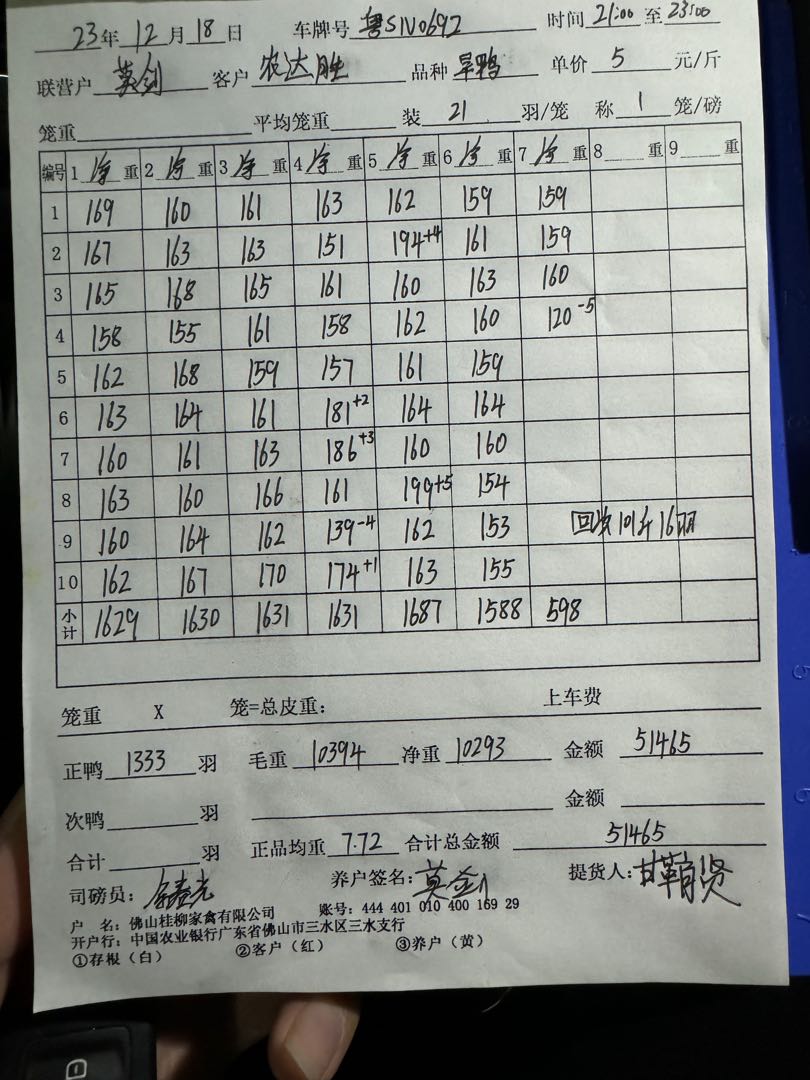 23年 12月 18日 车牌号 粤S1V0692 时间 21:00 至 23:00
联营户 莫剑 客户 农达胜 品种 旱鸭 单价 5 元/斤
笼重 平均笼重 装 21 羽/笼 称 1 笼/磅
编号 1 净 重 2 净 重 3 净 重 4 净 重 5 净 重 6 净 重 7 净 重 8 重 9 重
1 169 160 161 163 162 159 159
2 167 163 163 151 194+4 161 159
3 165 168 165 161 160 163 160
4 158 155 161 158 162 160 120-5
5 162 168 159 157 161 159
6 163 164 161 181+2 164 164
7 160 161 163 186+3 160 160
8 163 160 166 161 199+5 154
9 160 164 162 139-4 162 153 回收101斤16羽
10 162 167 170 174+1 163 155
小计 1629 1630 1631 1631 1687 1588 598
笼重 X 笼=总皮重: 上车费
正鸭 1333 羽 毛重 10394 净重 10293 金额 51465
次鸭 羽 金额
合计 羽 正品均重 7.72 合计总金额 51465
司磅员: 养户签名: 莫剑 提货人:
户 名: 佛山桂柳家禽有限公司 账号: 444 401 010 400 169 29
开户行: 中国农业银行广东省佛山市三水区三水支行
①存根（白） ②客户（红） ③养户（黄）